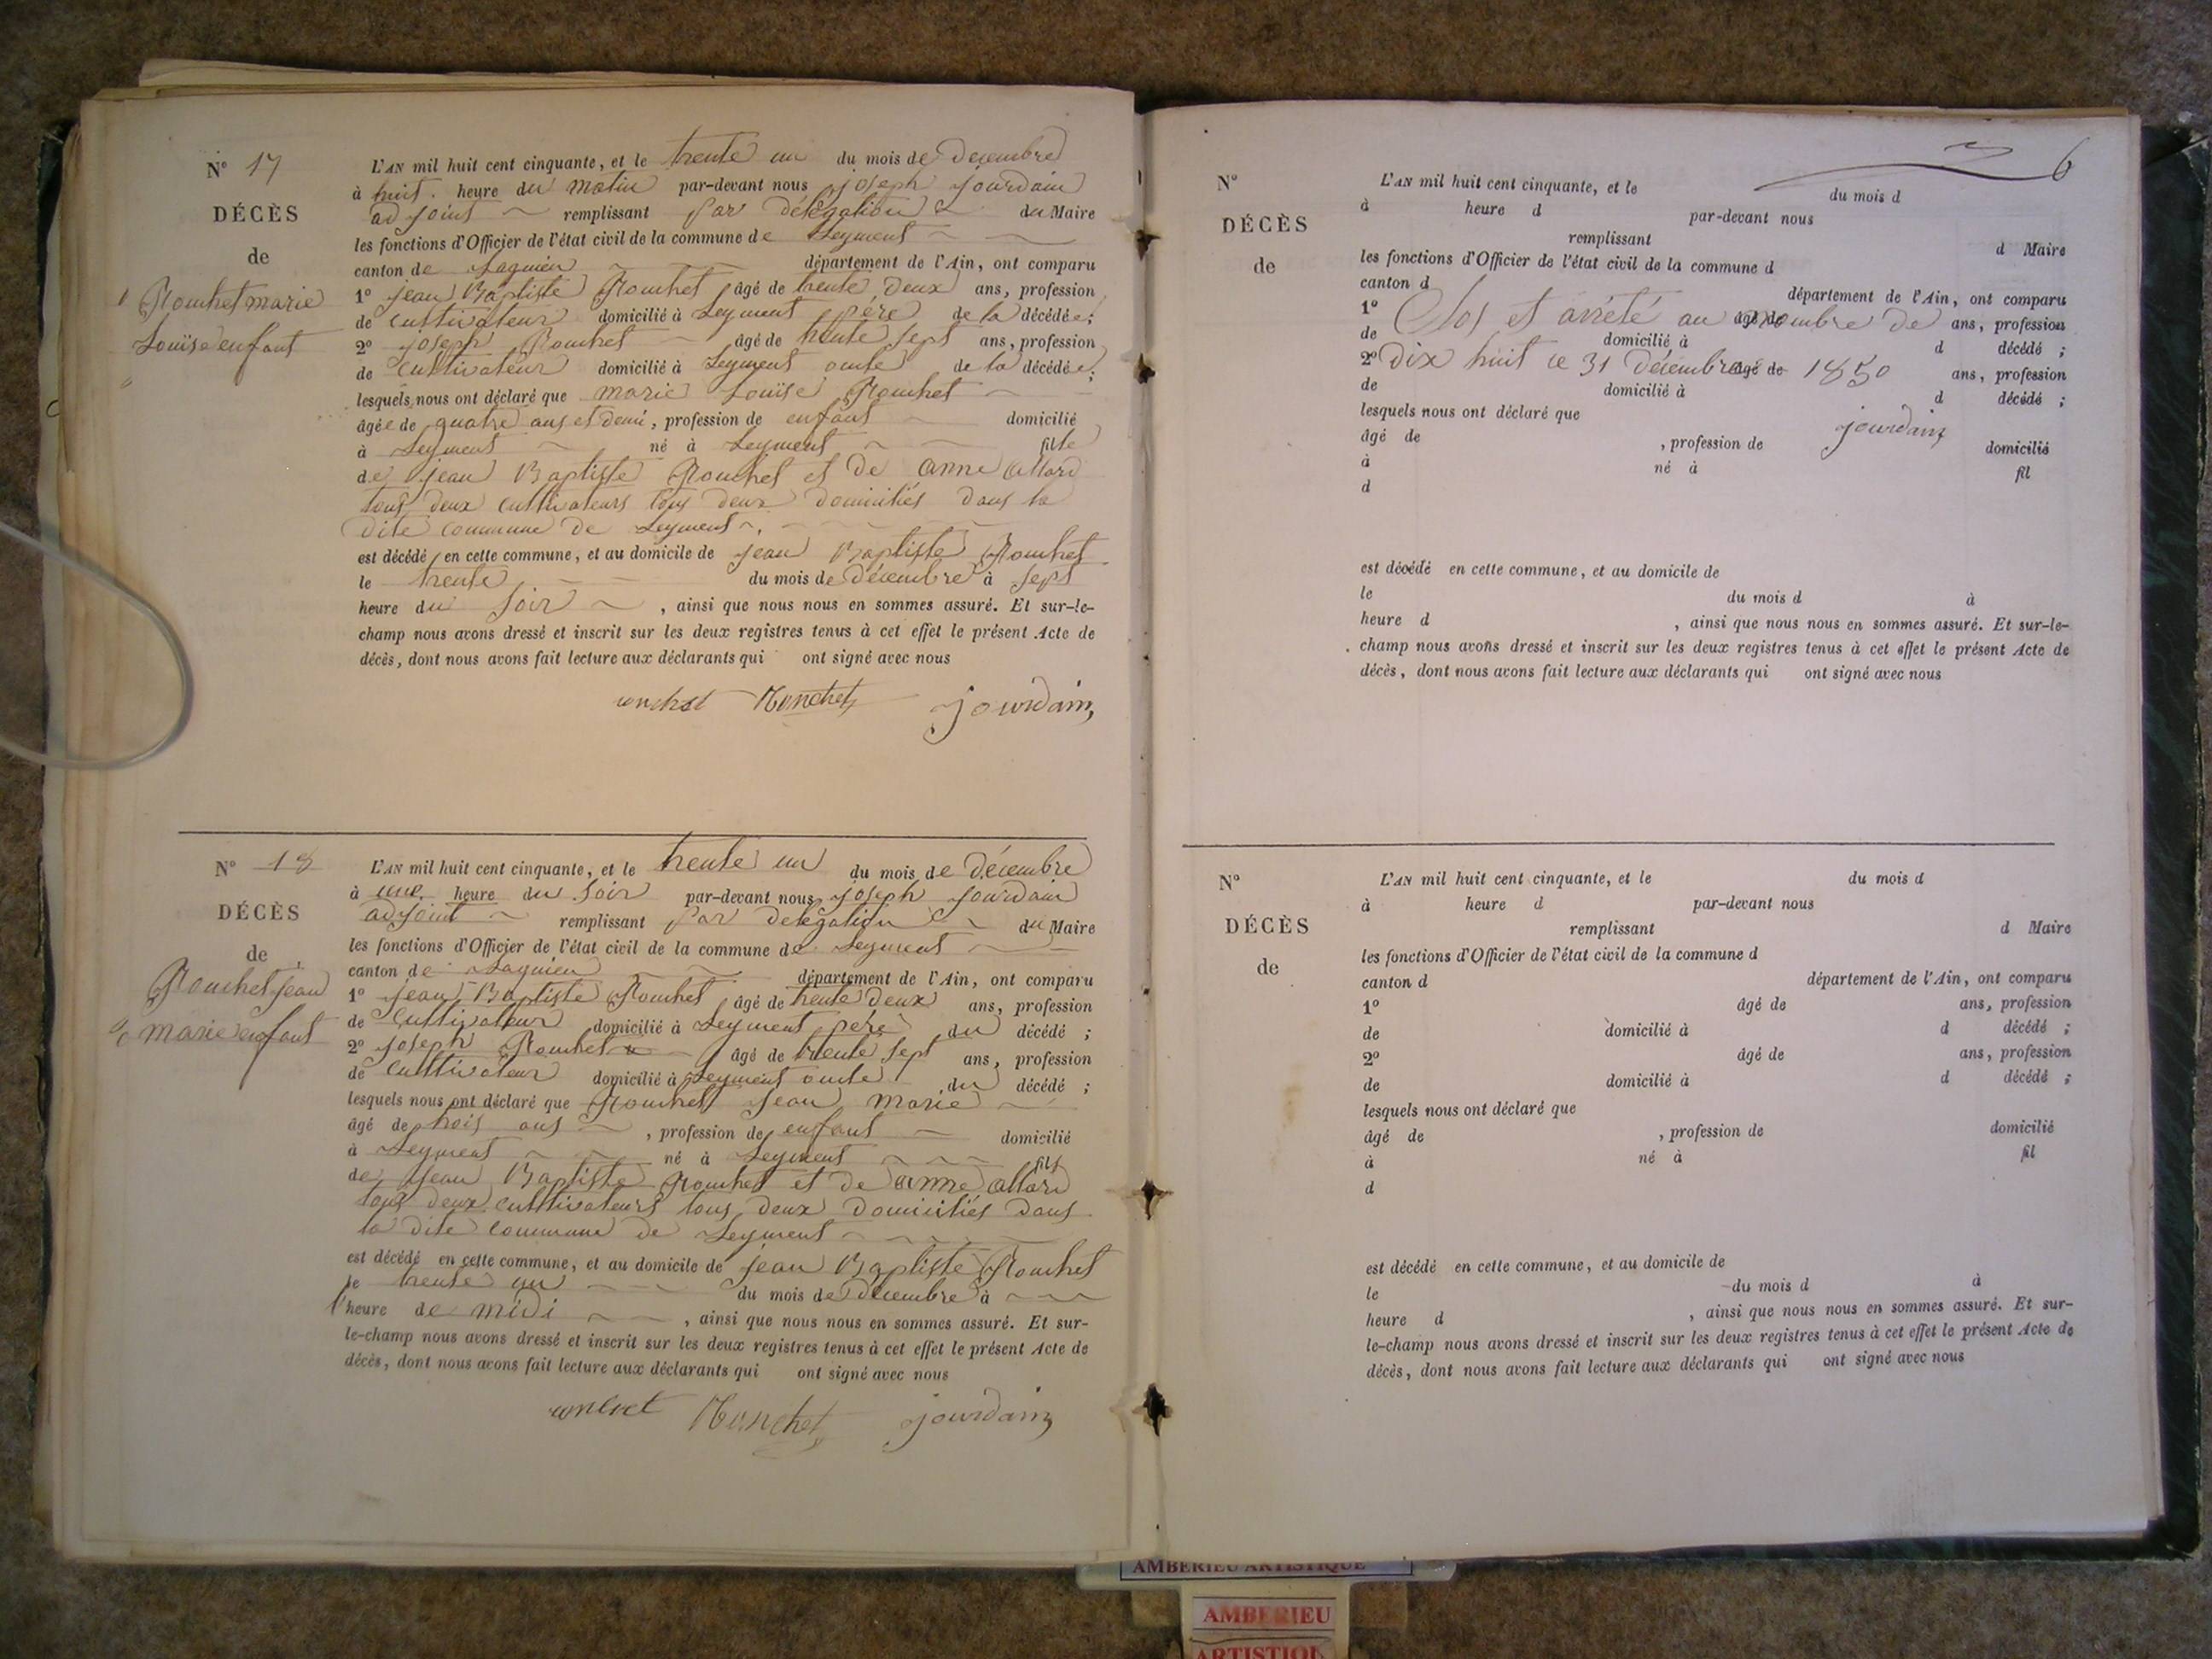 N° 17
DÉCÈS
de
Rouchet marie
Louise enfant
L'AN mil huit cent cinquante, et le trente un du mois de Decembre
à huit heure du matin par-devant nous joseph jourdain
adjoint remplissant par délégation du Maire
les fonctions d'Officier de l'état civil de la commune de Leyment
canton de Lagnieu département de l'Ain, ont comparu
1° jean Baptiste Rouchet âgé de trente deux ans, profession
de cultivateur domicilié à Leyment père de la décédée;
2° joseph Rouchet âgé de trente sept ans, profession
de cultivateur domicilié à Leyment oncle de la décédée;
lesquels nous ont déclaré que marie Louise Rouchet
âgée de quatre ans et demi, profession de enfant domicilié
à Leyment né à Leyment fille
de jean Baptiste Rouchet et de anne allard
tous deux cultivateurs tous deux domiciliés dans la
dite commune de Leyment
est décédé en cette commune, et au domicile de jean Baptiste Rouchet
le trente du mois de décembre à sept
heure du soir, ainsi que nous nous en sommes assuré. Et sur-le-
champ nous avons dressé et inscrit sur les deux registres tenus à cet effet le présent Acte de
décès, dont nous avons fait lecture aux déclarants qui ont signé avec nous
Ronchet jourdain
N° 18
DÉCÈS
de
Rouchet jean
marie enfant
L'AN mil huit cent cinquante, et le trente un du mois de Décembre
à une heure du soir par-devant nous joseph jourdain
adjoint remplissant par delégation du Maire
les fonctions d'Officier de l'état civil de la commune de Leyment
canton de Lagnieu département de l'Ain, ont comparu
1° jean Baptiste Rouchet âgé de trente deux ans, profession
de cultivateur domicilié à Leyment père du décédé ;
2° joseph Rouchet âgé de trente sept ans, profession
de culltivateur domicilié à Leyment oncle du décédé ;
lesquels nous ont déclaré que Rouchet jean marie
âgé de trois ans, profession de enfant domicilié
à Leyment né à Leyment fils
de jean Baptiste Rouchet et de anne allard
tous deux culltivateurs tous deux domiciliés dans
la dite commune de Leyment
est décédé en cette commune, et au domicile de jean Baptiste Rouchet
le trente un du mois de décembre à
l'heure de midi, ainsi que nous nous en sommes assuré. Et sur-
le-champ nous avons dressé et inscrit sur les deux registres tenus à cet effet le présent Acte de
décès, dont nous avons fait lecture aux déclarants qui ont signé avec nous
Ronchet jourdain
6
N°
DÉCÈS
de
L'AN mil huit cent cinquante, et le du mois d
à heure d par-devant nous
remplissant d Maire
les fonctions d'Officier de l'état civil de la commune d
canton d département de l'Ain, ont comparu
1° âgé de ans, profession
Clos et arrêté au nombre de
de domicilié à d décédé ;
2° âgé de ans, profession
Dix huit le 31 Décembre 1850
de domicilié à d décédé ;
lesquels nous ont déclaré que
jourdain
âgé de , profession de domicilié
à né à fil
d
est décédé en cette commune, et au domicile de
le du mois d à
heure d , ainsi que nous nous en sommes assuré. Et sur-le-
champ nous avons dressé et inscrit sur les deux registres tenus à cet effet le présent Acte de
décès, dont nous avons fait lecture aux déclarants qui ont signé avec nous
N°
DÉCÈS
de
L'AN mil huit cent cinquante, et le du mois d
à heure d par-devant nous
remplissant d Maire
les fonctions d'Officier de l'état civil de la commune d
canton d département de l'Ain, ont comparu
1° âgé de ans, profession
de domicilié à d décédé ;
2° âgé de ans, profession
de domicilié à d décédé ;
lesquels nous ont déclaré que
âgé de , profession de domicilié
à né à fil
d
est décédé en cette commune, et au domicile de
le du mois d à
heure d , ainsi que nous nous en sommes assuré. Et sur-
le-champ nous avons dressé et inscrit sur les deux registres tenus à cet effet le présent Acte de
décès, dont nous avons fait lecture aux déclarants qui ont signé avec nous
AMBERIEU ARTISTIQUE
AMBERIEU